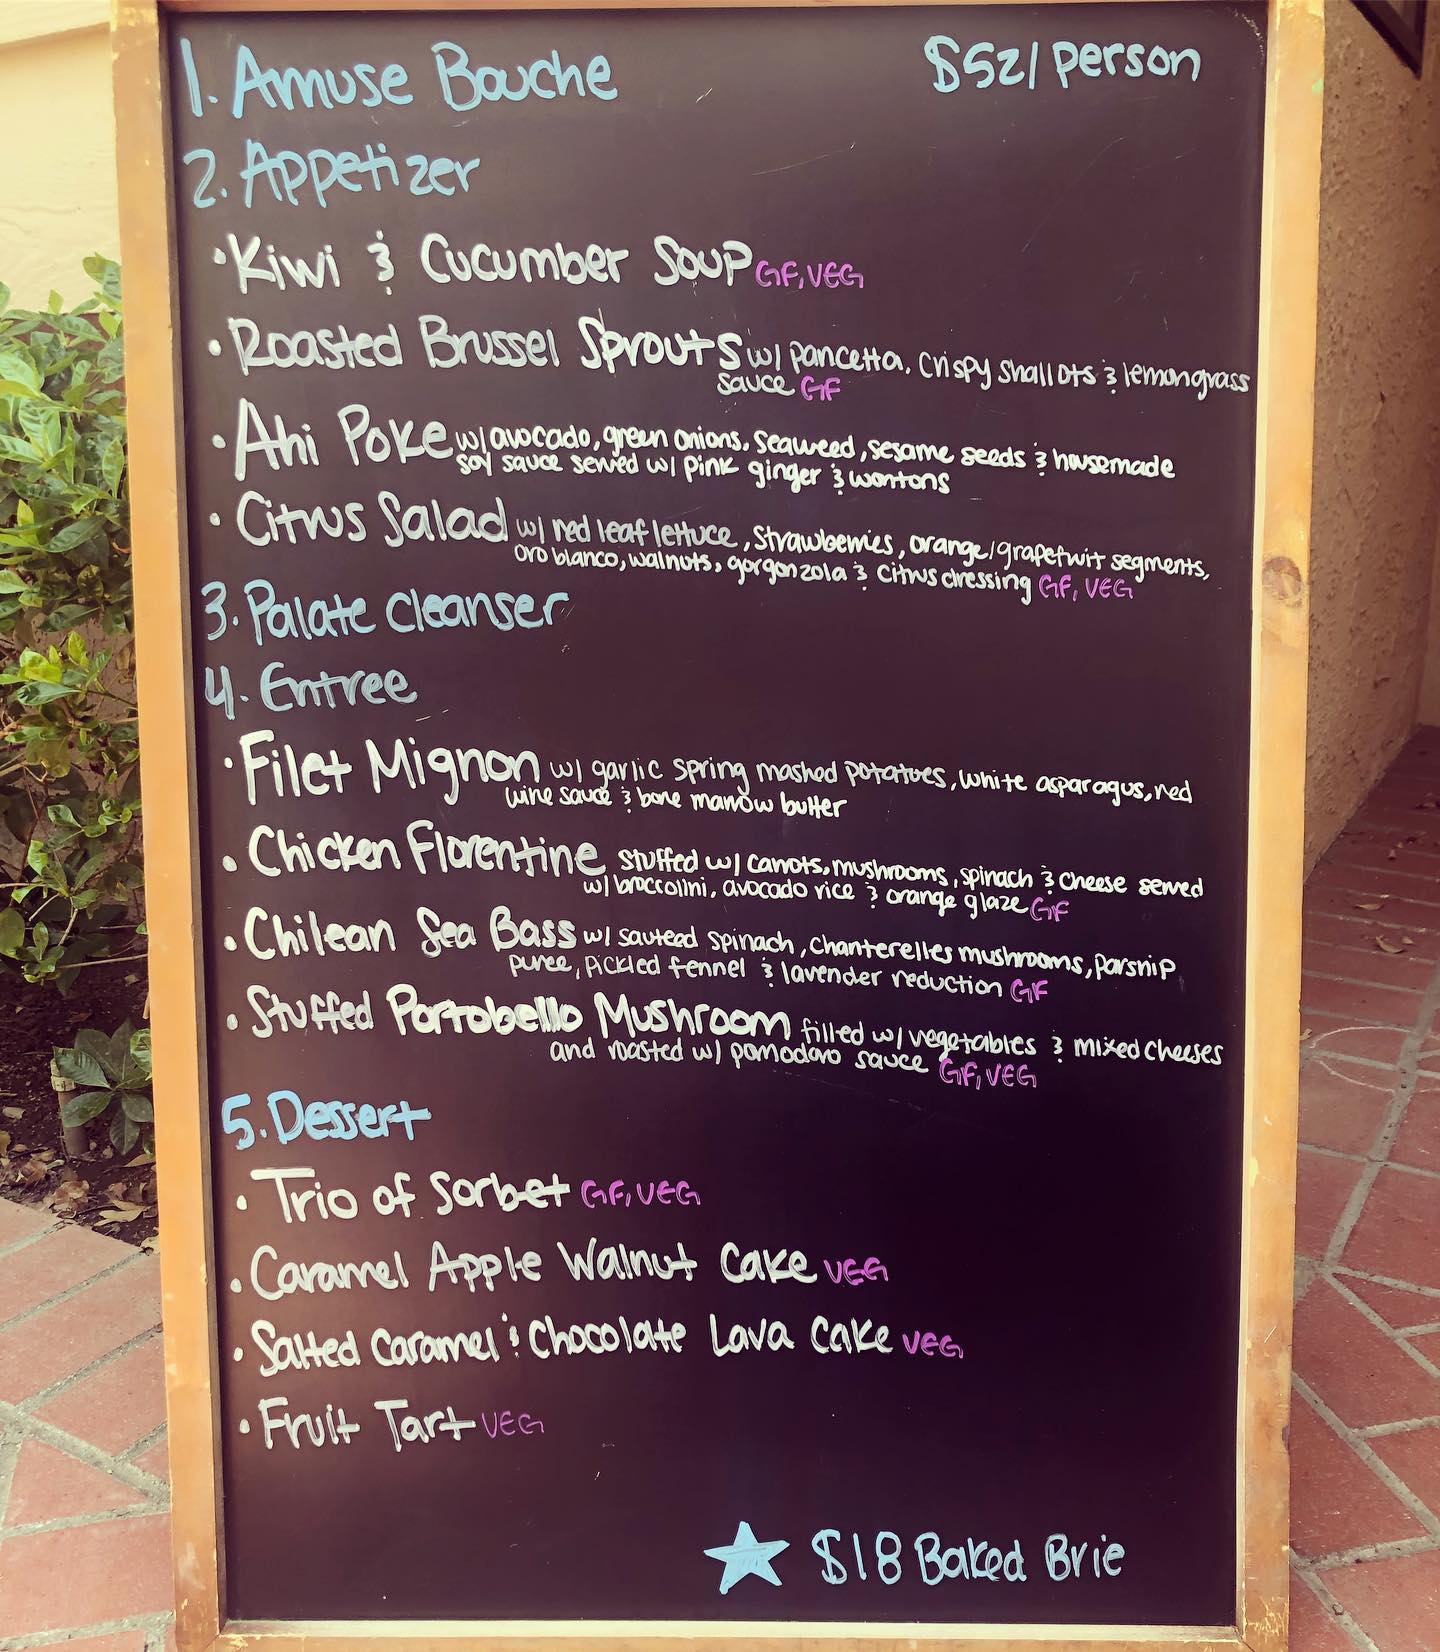 1. Amuse Bouche $52/person
2. Appetizer
• Kiwi & Cucumber Soup GF, VEG
• Roasted Brussel Sprouts w/ pancetta, crispy shallots & lemongrass
sauce GF
• Ahi Poke w/ avocado, green onions, seaweed, sesame seeds & housemade
soy sauce served w/ pink ginger & wontons
• Citrus Salad w/ red leaf lettuce, strawberries, orange/grapefruit segments,
oro blanco, walnuts, gorgonzola & citrus dressing GF, VEG
3. Palate Cleanser
4. Entree
• Filet Mignon w/ garlic spring mashed potatoes, white asparagus, red
wine sauce & bone marrow butter
• Chicken Florentine stuffed w/ carrots, mushrooms, spinach & cheese served
w/ broccolini, avocado rice & orange glaze GF
• Chilean Sea Bass w/ sauteed spinach, chanterelles mushrooms, parsnip
puree, pickled fennel & lavender reduction GF
• Stuffed Portobello Mushroom filled w/ vegetables & mixed cheeses
and roasted w/ pomodoro sauce GF, VEG
5. Dessert
• Trio of Sorbet GF, VEG
• Caramel Apple Walnut Cake VEG
• Salted Caramel & Chocolate Lava Cake VEG
• Fruit Tart VEG
★ $18 Baked Brie